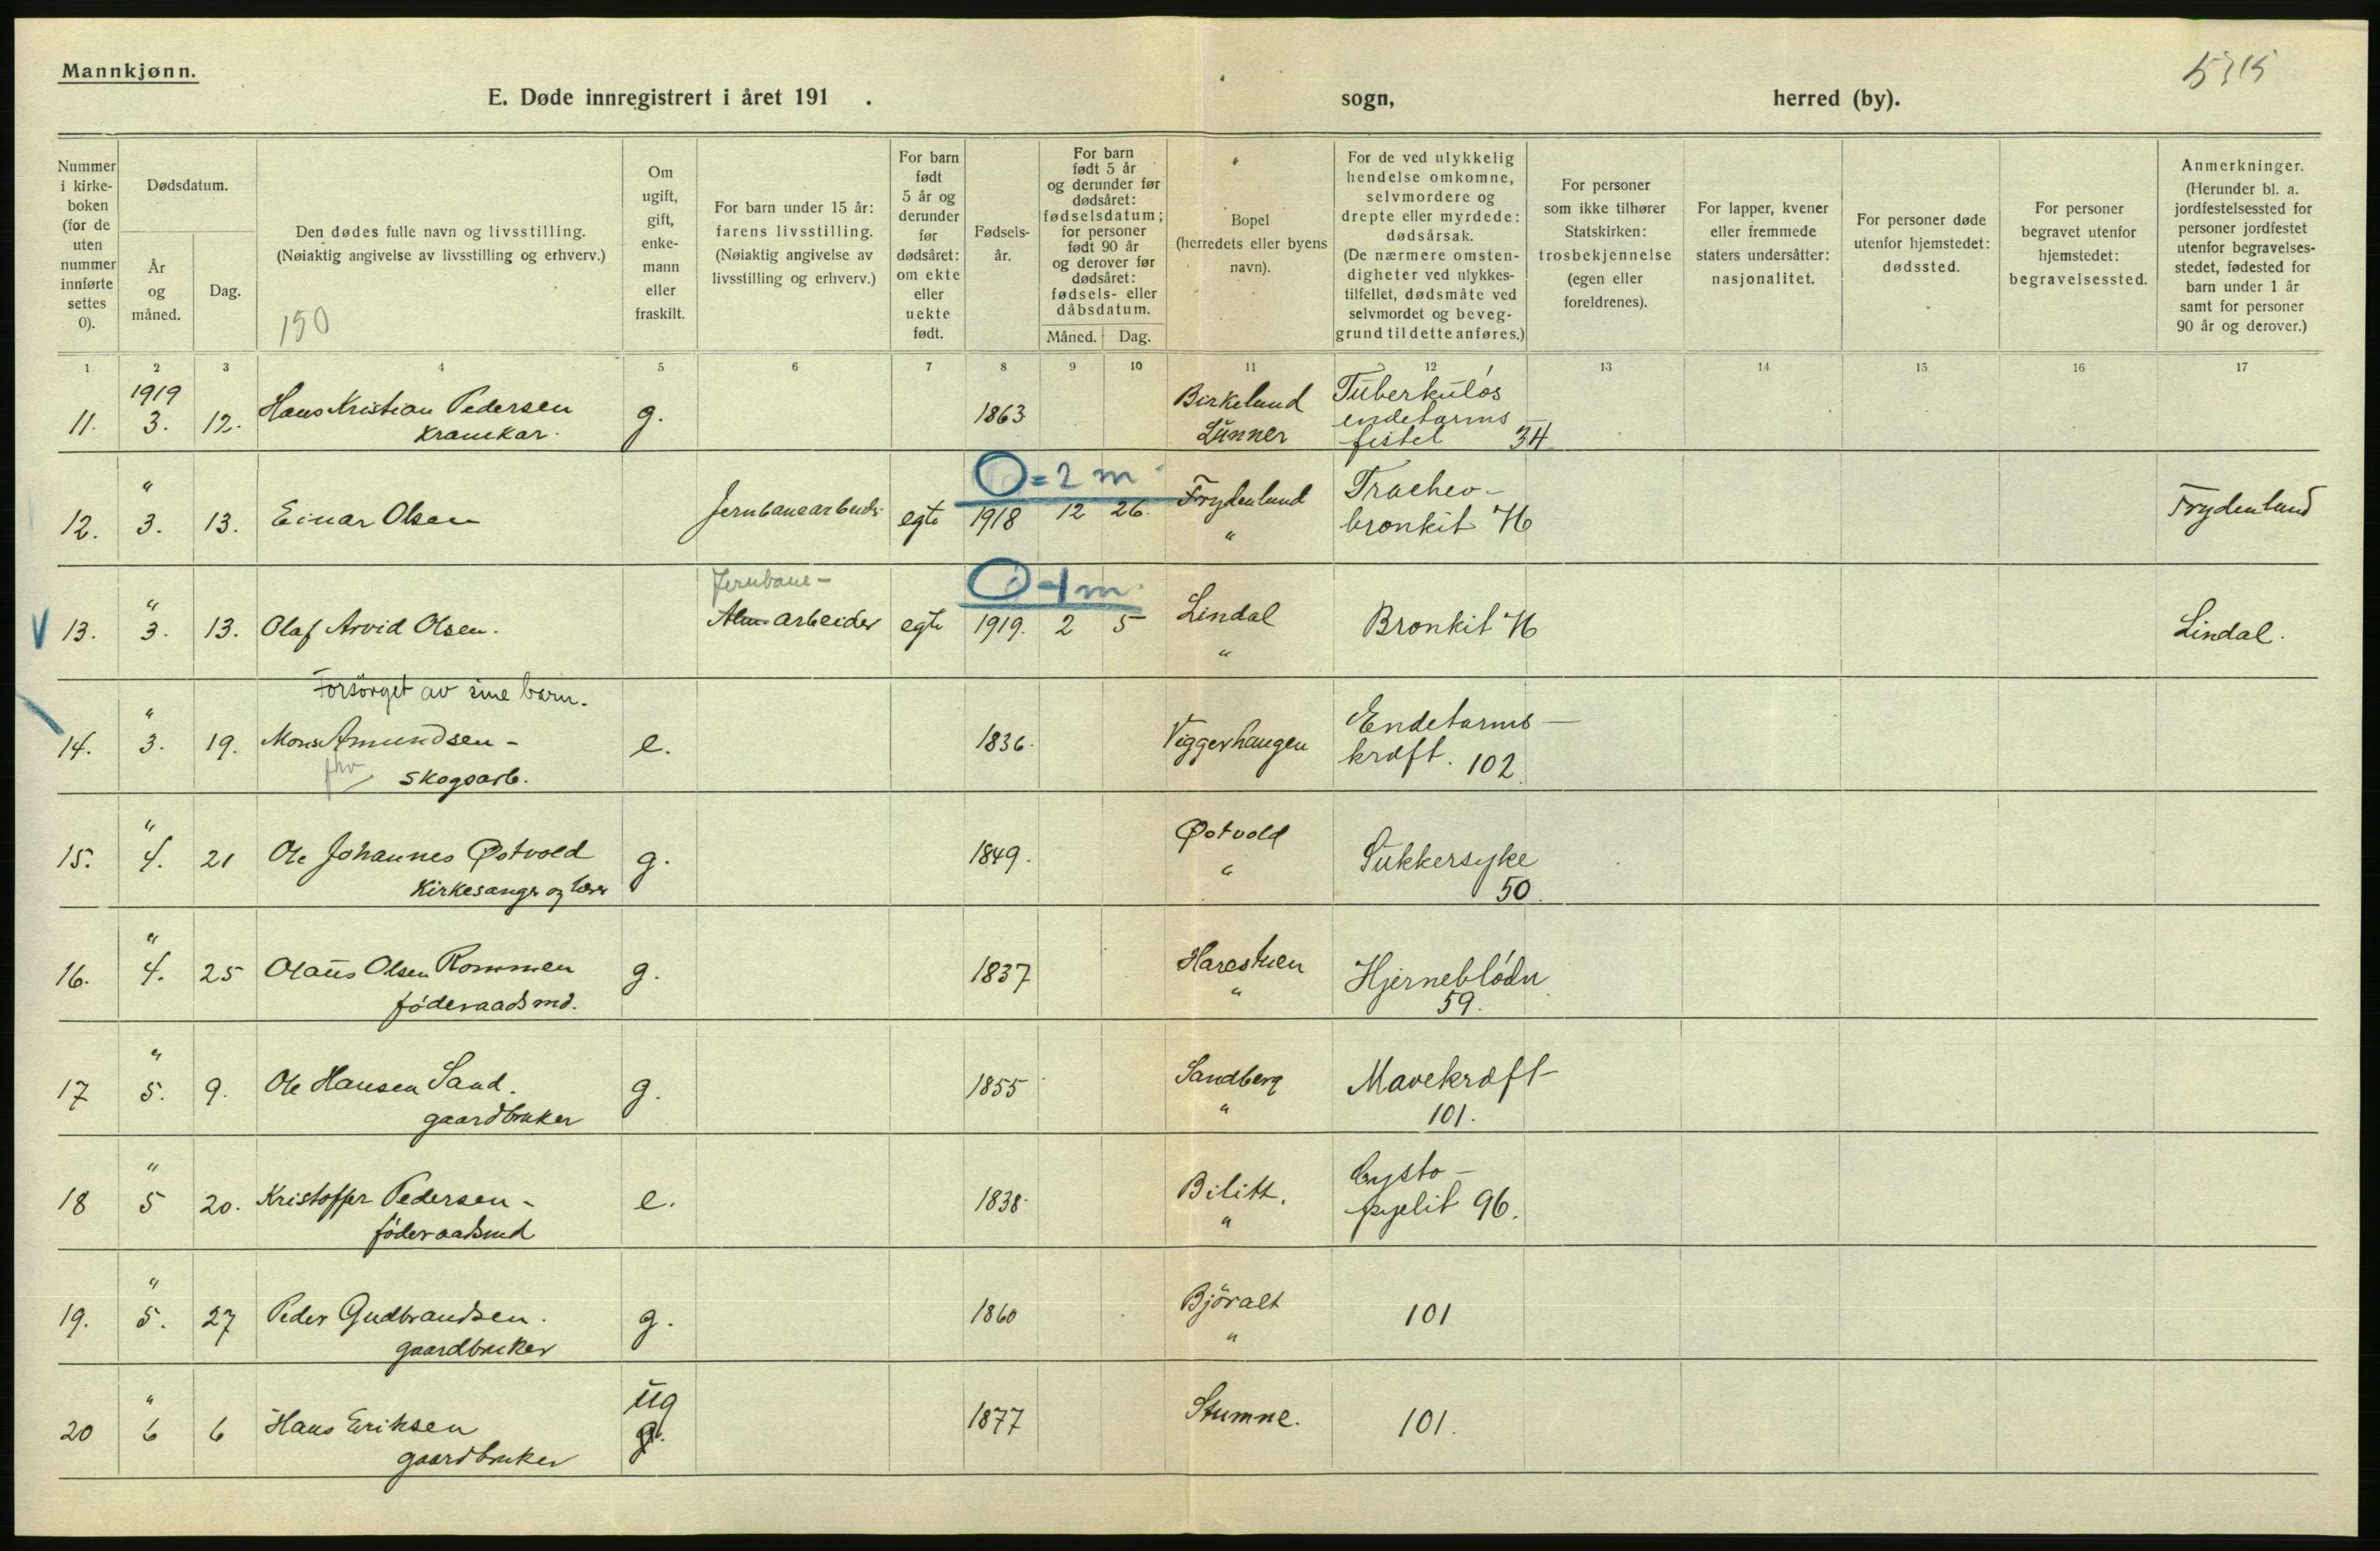 Mannkjønn.
5315
E. Døde innregistrert i året 191 . sogn, herred (by).
Nummer i kirke- boken (for de uten nummer innførte settes 0).
Dødsdatum.
År og måned.
Dag.
Den dødes fulle navn og livsstilling.
(Nøiaktig angivelse av livsstilling og erhverv.)
150
Om ugift, gift, enke- mann eller fraskilt.
For barn under 15 år: farens livsstilling. (Nøiaktig angivelse av livsstilling og erhverv.)
For barn født 5 år og derunder før dødsåret: om ekte eller uekte født.
Fødsels- år.
For barn født 5 år og derunder før dødsåret: fødselsdatum; for personer født 90 år og derover før dødsåret: fødsels- eller dåbsdatum.
Måned. Dag.
Bopel (herredets eller byens navn).
For de ved ulykkelig hendelse omkomne, selvmordere og drepte eller myrdede: dødsårsak. (De nærmere omsten- digheter ved ulykkes- tilfellet, dødsmåte ved selvmordet og beveg- grund til dette anføres.)
For personer som ikke tilhører Statskirken: trosbekjennelse (egen eller foreldrenes).
For lapper, kvener eller fremmede staters undersåtter: nasjonalitet.
For personer døde utenfor hjemstedet: dødssted.
For personer begravet utenfor hjemstedet: begravelsessted.
Anmerkninger. (Herunder bl. a. jordfestelsessted for personer jordfestet utenfor begravelses- stedet, fødested for barn under 1 år samt for personer 90 år og derover.)
1 2 3 4 5 6 7 8 9 10 11 12 13 14 15 16 17
1919
11. 3. 12. Hans Kristian Pedersen g. 1863 Birkelund Tuberkuløs
Kranekar. Lunner endetarms
fistel 34
O = 2 m
12. " 3. 13. Einar Olsen Jernbanearbeids egte 1918 12 26. Frydenlund Tracheo- Frydenlund
" bronkit 46
Jernbane- O - 1 m.
V 13. " 3. 13. Olaf Arvid Olsen. Alm arbeider egte 1919. 2 5 Lindal Bronkit 46 Lindal.
"
Forsörget av sine barn.
14. " 3. 19. Mons Amundsen - e. 1836. Viggerhaugen Endetarms-
fhv skogsarb. kræft. 102
15. " 4. 21 Ole Johannes Østvold g. 1849. Østvold Sukkersyke
Kirkesanger og lærer " 50.
16. " 4. 25 Olaus Olsen Rommen g. 1837 Harestuen Hjerneblødn
föderaadsmd. " 59.
17 " 5. 9. Ole Hansen Sand. g. 1855 Sandberg Mavekræft-
gaardbruker " 101.
18 " 5 20. Kristoffer Pedersen - e. 1838. Bilitt. Cysto-
föderaadsmd " pyelit 96.
19. " 5. 27 Peder Gudbrandsen. g. 1860 Björalt 101
gaardbruker "
20 " 6 6 Hans Eriksen ug 1877 Stumne. 101.
gaardbruker g.